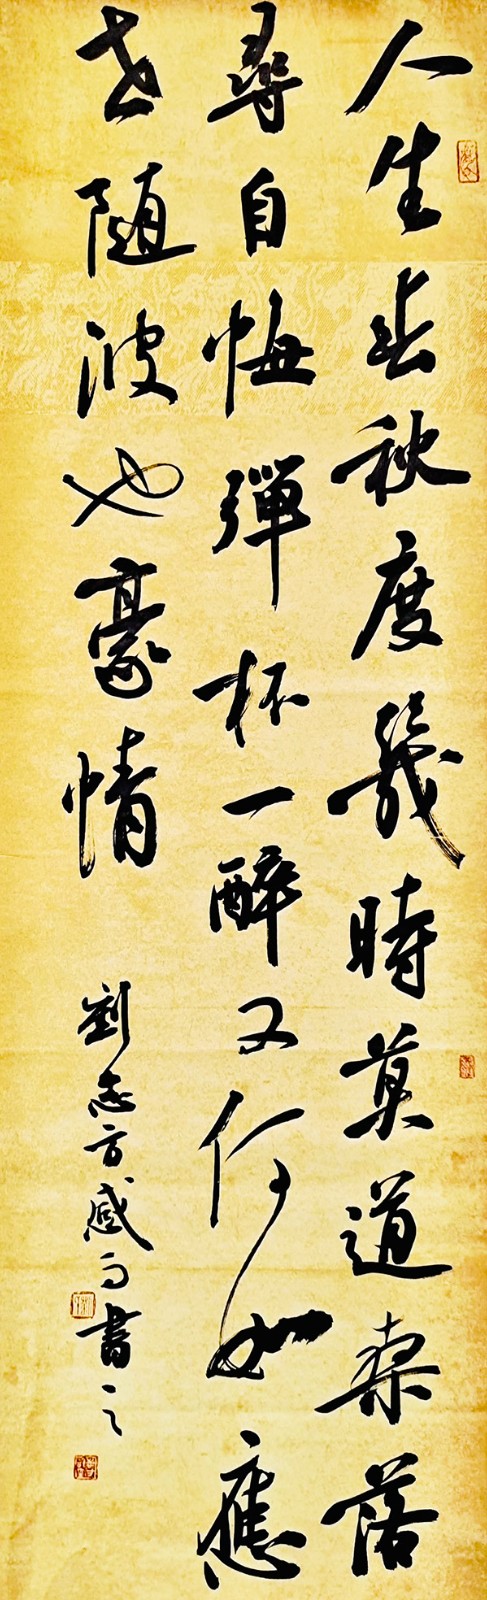 人生春秋度幾時莫道桑落
尋自悔彈杯一醉又何如應
世隨波也豪情
劉志方感而書之